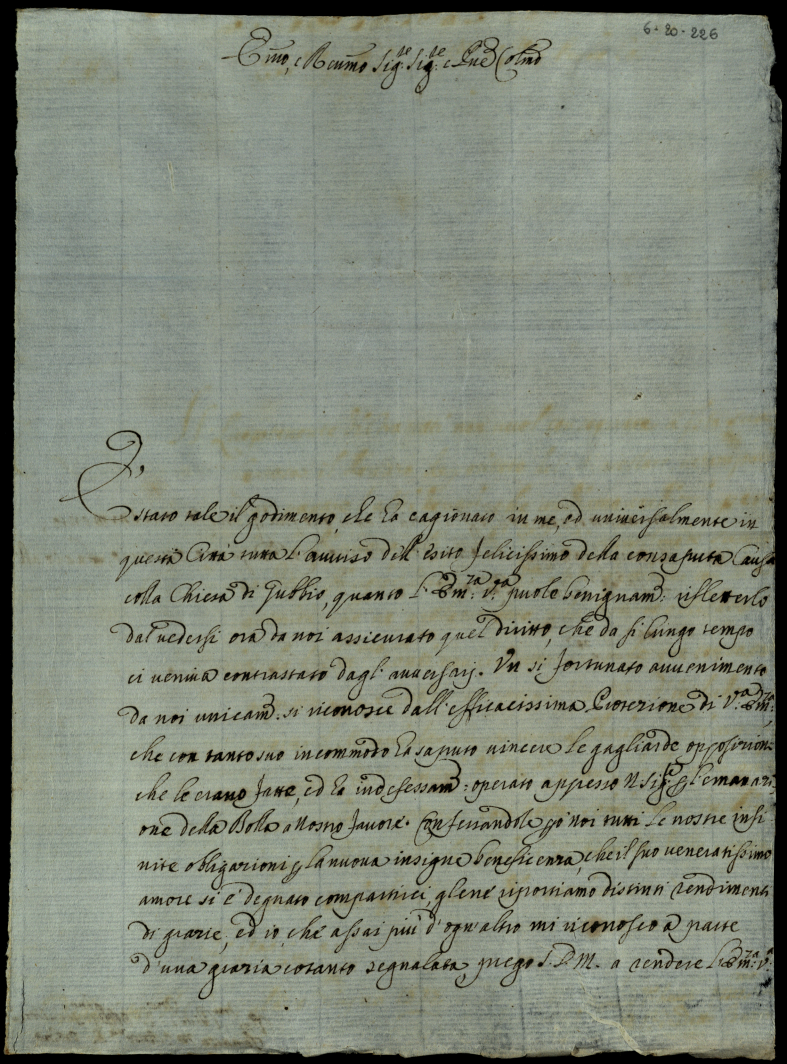 6-20-226
Emo, e Reumo Sig:re Sig:re e Pne Colmo
È
stato tale il godimento, che hà cagionato in me, ed universalmente in
questa Città tutta l'auuiso dell'esito felicissimo della consaputa Causa
colla Chiesa di Gubbio, quanto l'Em:za V:ra puole benignam: rifletterlo
dal vedersi ora da noi assicurato quel diritto, che da sì lungo tempo
ci veniua contrastato dagl'auuersarj. Un sì fortunato auuenimento
da noi unicam: si riconosce dall'efficacissima Protezione di V:ra Em:za,
che con tanto suo incommodo hà saputo vincere le gagliarde opposizioni
che le erano fatte, ed hà indefessam: operato appresso N. Sig:re p l'emanazi
one della Bolla a nostro favore. Confessandole p ciò noi tutti le nostre infi
nite obligazioni p la nuova insigne beneficenza, che il suo veneratissimo
amore si è degnato compartirci, gliene riportiamo distinti rendimenti
di grazie, ed io, che assai più d'ogn'altro mi riconosco a parte
d'una grazia cotanto segnalata, prego S.D.M. a rendere l'Em:za V:ra